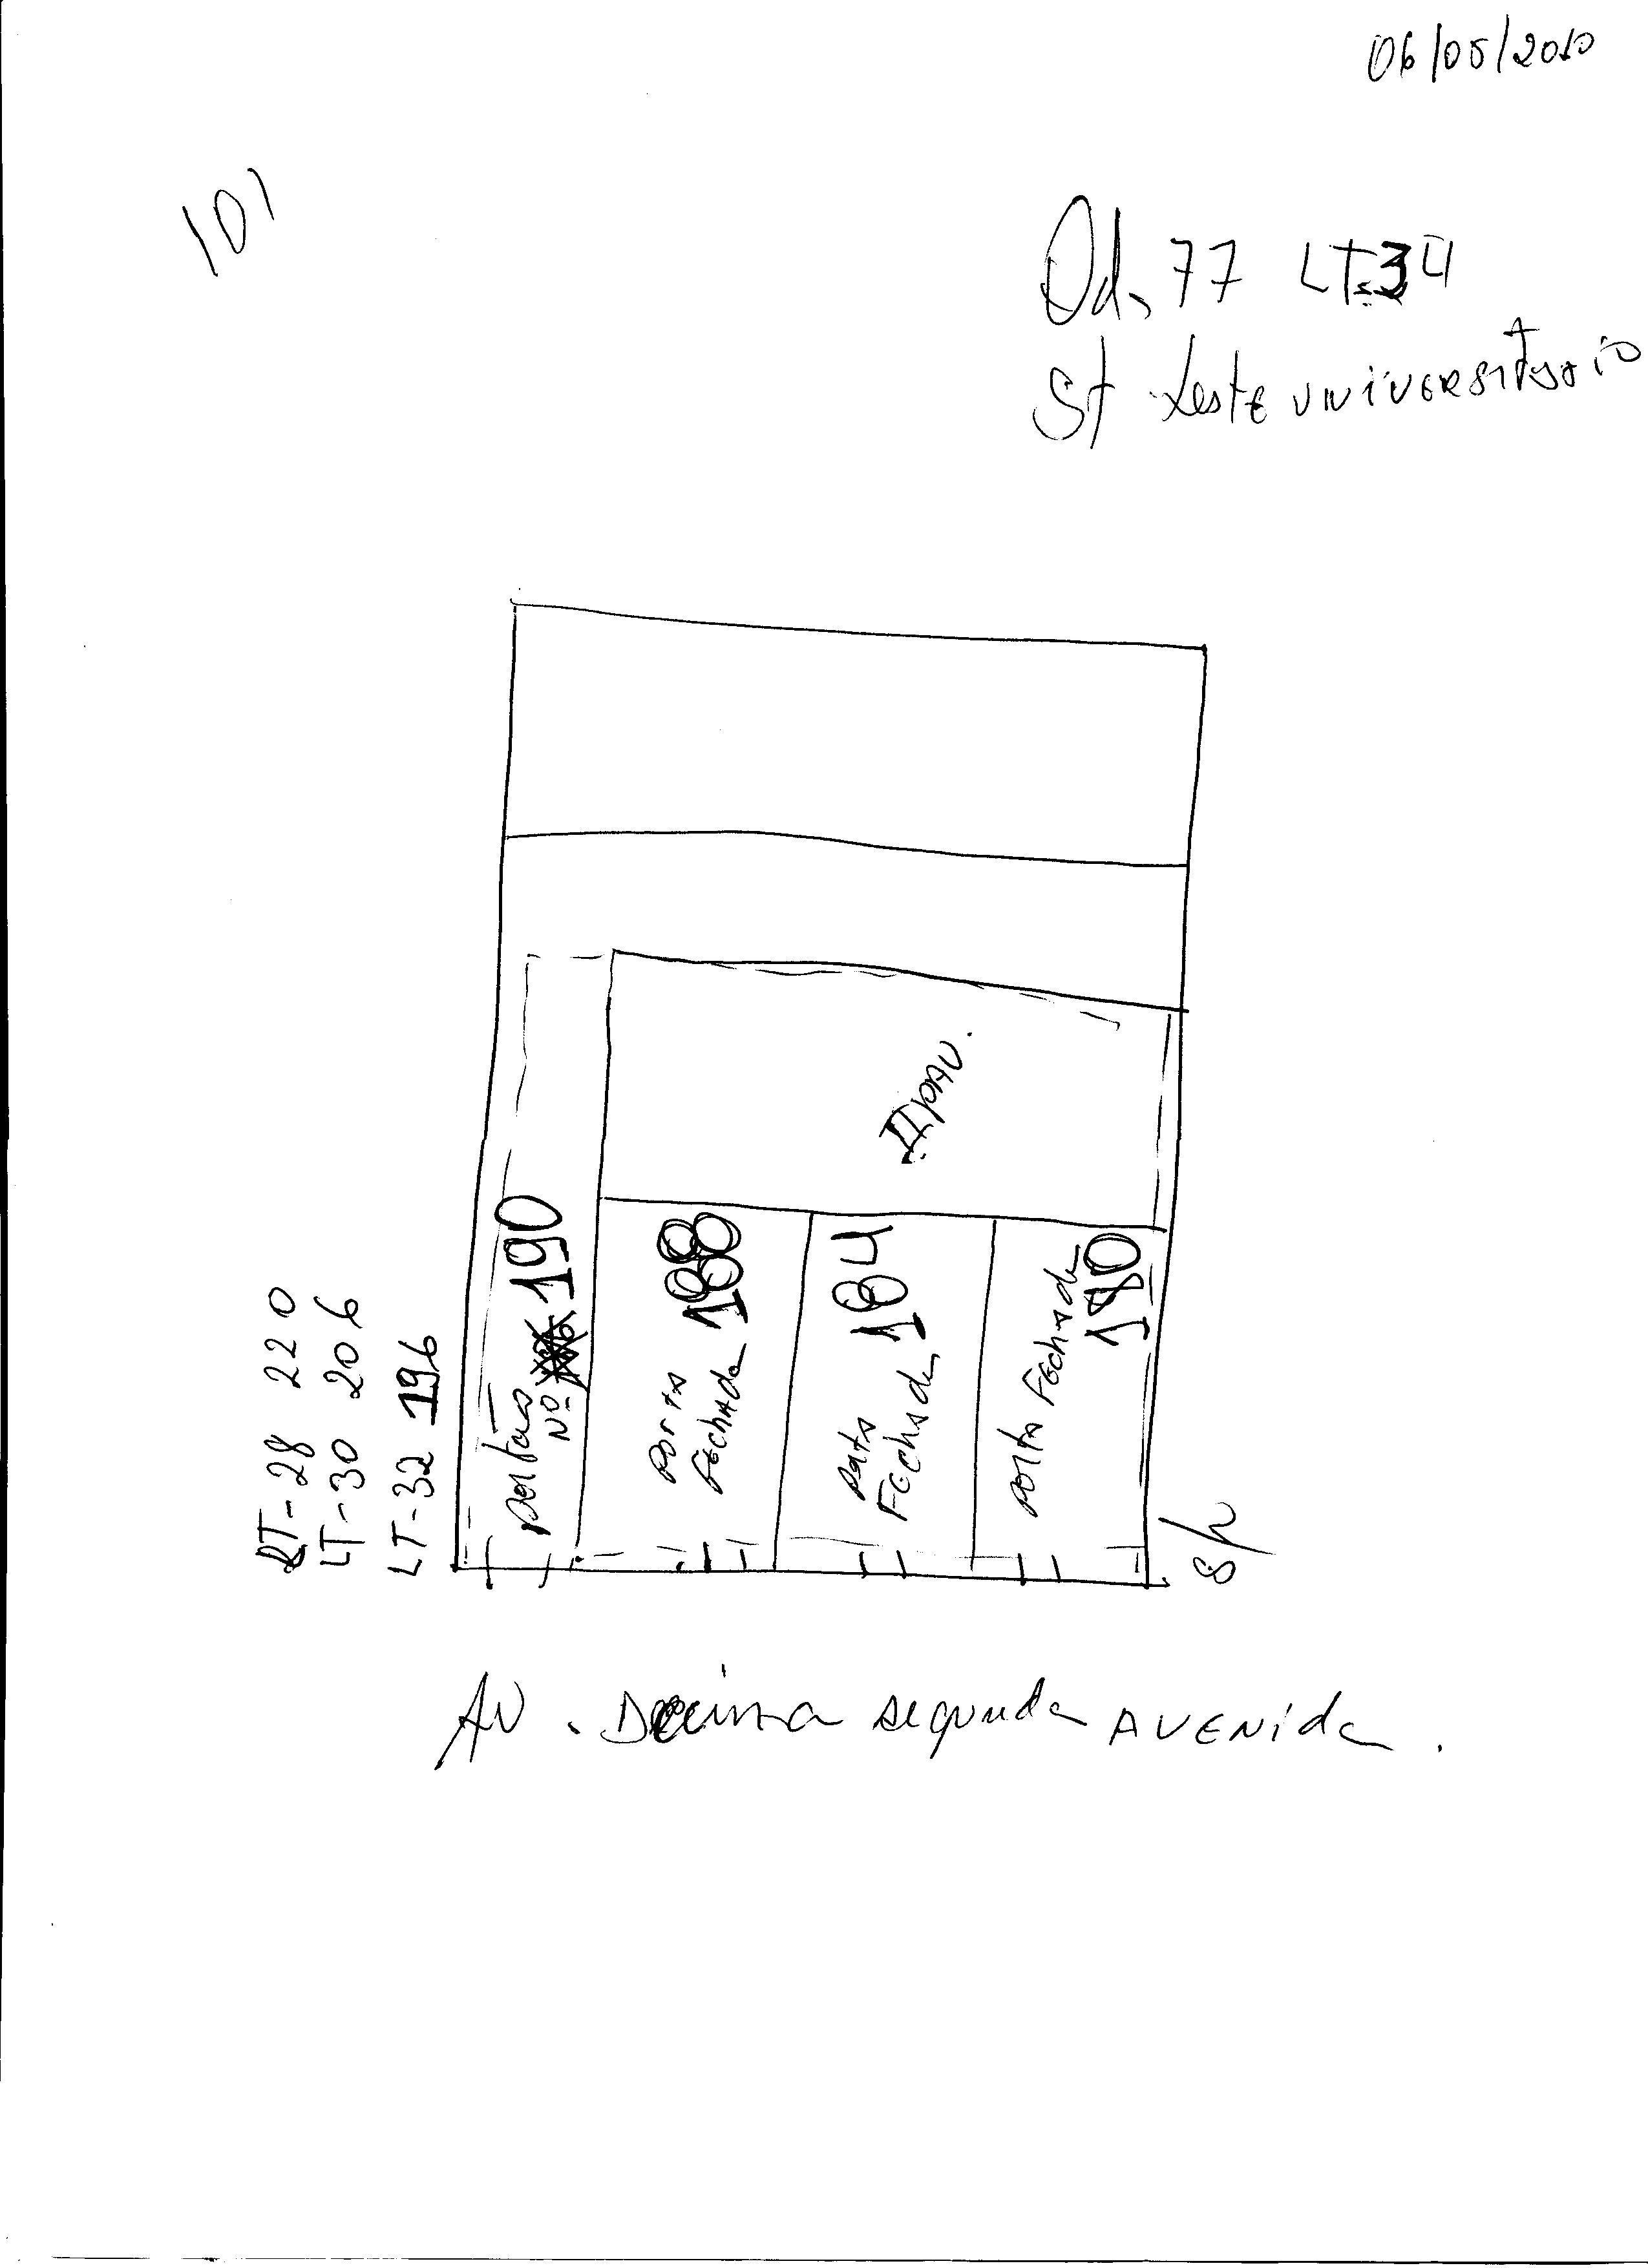 06/05/2010
101
Qd. 77 LT-34
St Leste UNIVERSITÁRIO
LT-28 220
LT-30 206
LT-32 196
portão
Nº 190
PORTA
FEchAda 188
porta
FEchada 184
porta FEchada
180
II PAV.
AV. Decima segunda AVENida.